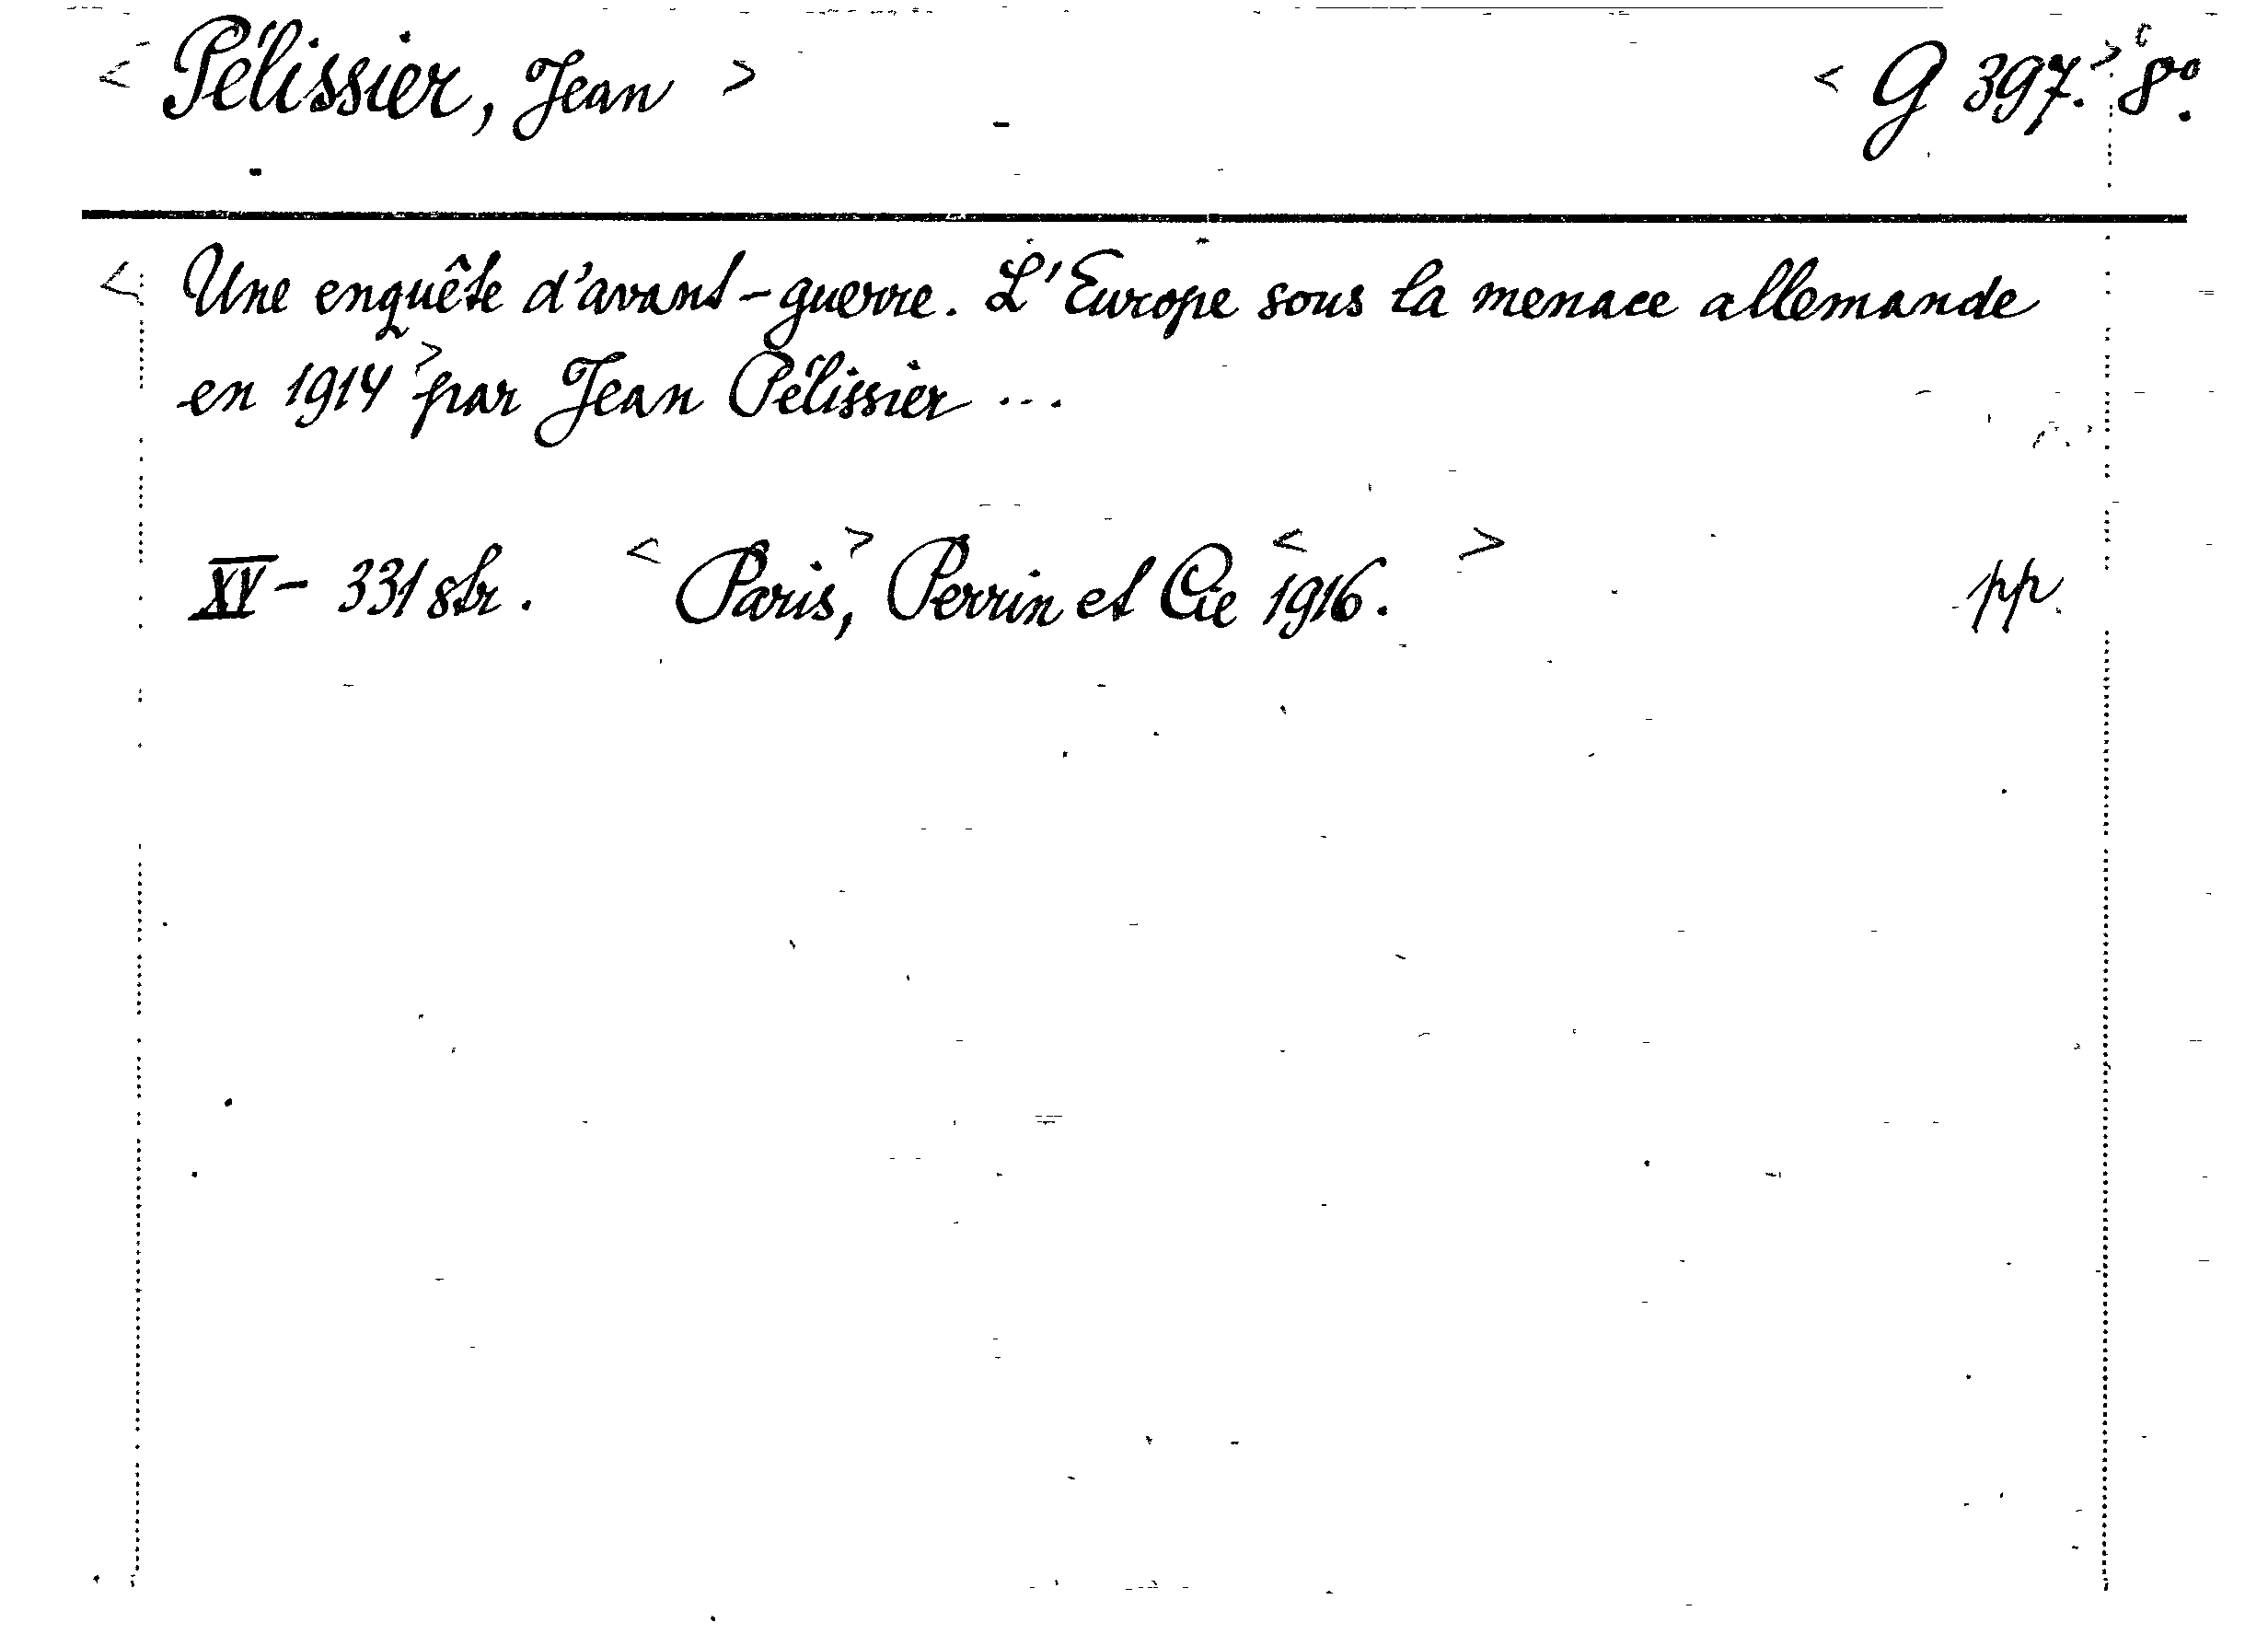 < Pélissier, Jean > < G 397. > 8°.
< Une enquête d'avant-guerre. L'Europe sous la menace allemande
en 1914 > par Jean Pélissier ...
XV - 331 str. < Paris, > Perrin et Cie < 1916. > pp.